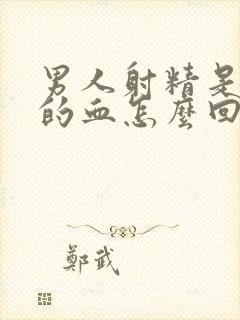 男人射精是
的血怎麼回
鄭武